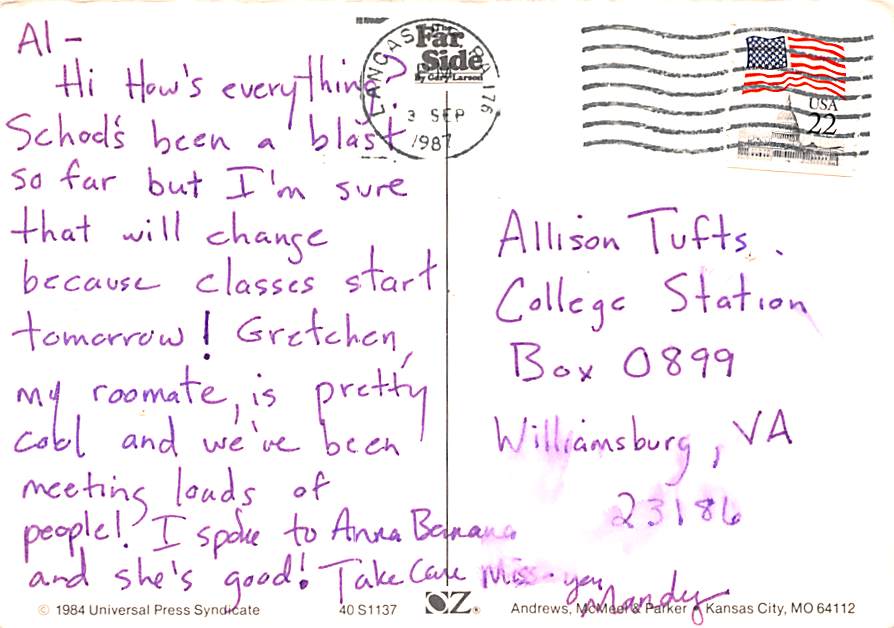 Al -
Hi How's everything?
School's been a blast
so far but I'm sure
that will change
because classes start
tomorrow! Gretchen,
my roomate, is pretty
cool and we've been
meeting loads of
people! I spoke to Anna Banana
and she's good! Take Care Miss you
Mandy
The
Far
Side
By Gary Larson
LANCASTER PA 176
3 SEP
1987
USA
22
Allison Tufts
College Station
Box 0899
Williamsburg, VA
23186
© 1984 Universal Press Syndicate
40 S1137
OZ®
Andrews, McMeel & Parker • Kansas City, MO 64112